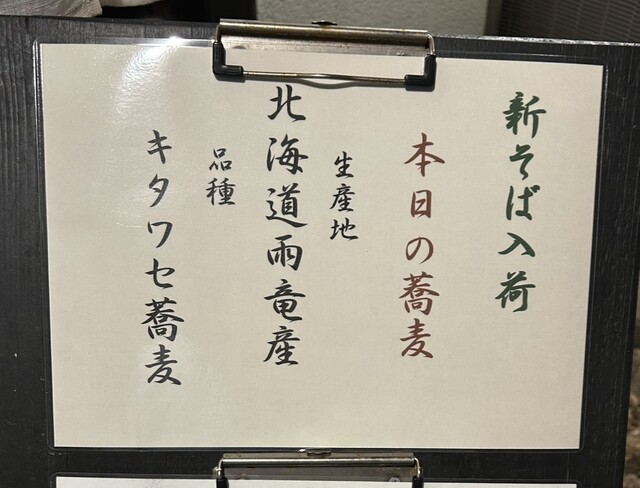 新そば入荷
本日の蕎麦
生産地
北海道雨竜産
品種
キタワセ蕎麦